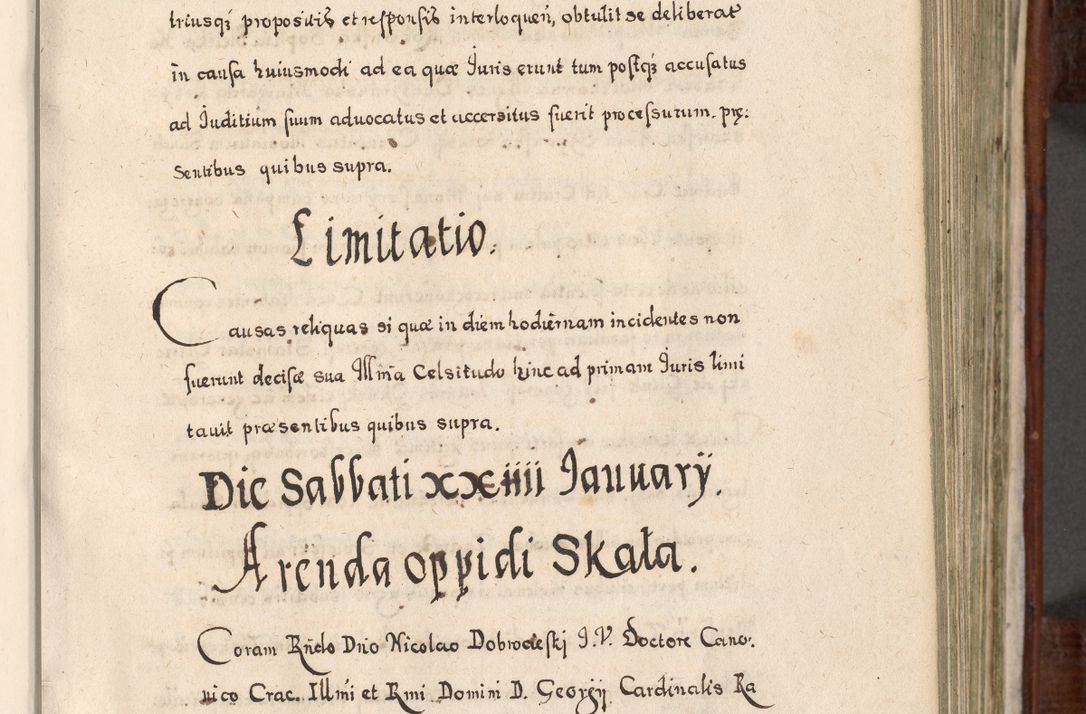 triusqꝫ propositis et responsis interloqueñ, obtulit se deliberat
in causa huiusmodi ad ea quæ Iuris erunt tum postqꝫ accusatus
ad Iuditium suum aduocatus et accersitus fuerit processurum. prę:
sentibus quibus supra.
Limitatio.
Causas reliquas si quæ in diem hodiernam incidentes non
fuerunt decisæ sua Illm̃a Celsitudo hinc ad primam Iuris limi
tauit præsentibus quibus supra.
Die Sabbati xxiiii Ianuarÿ.
Arenda oppidi Skała.
Coram Rñdo Dño Nicolao Dobrocieskj I. V. Doctore Cano:
nico Crac. Illm̃i et Rmi Domini D. Georgÿ Cardinalis Ra